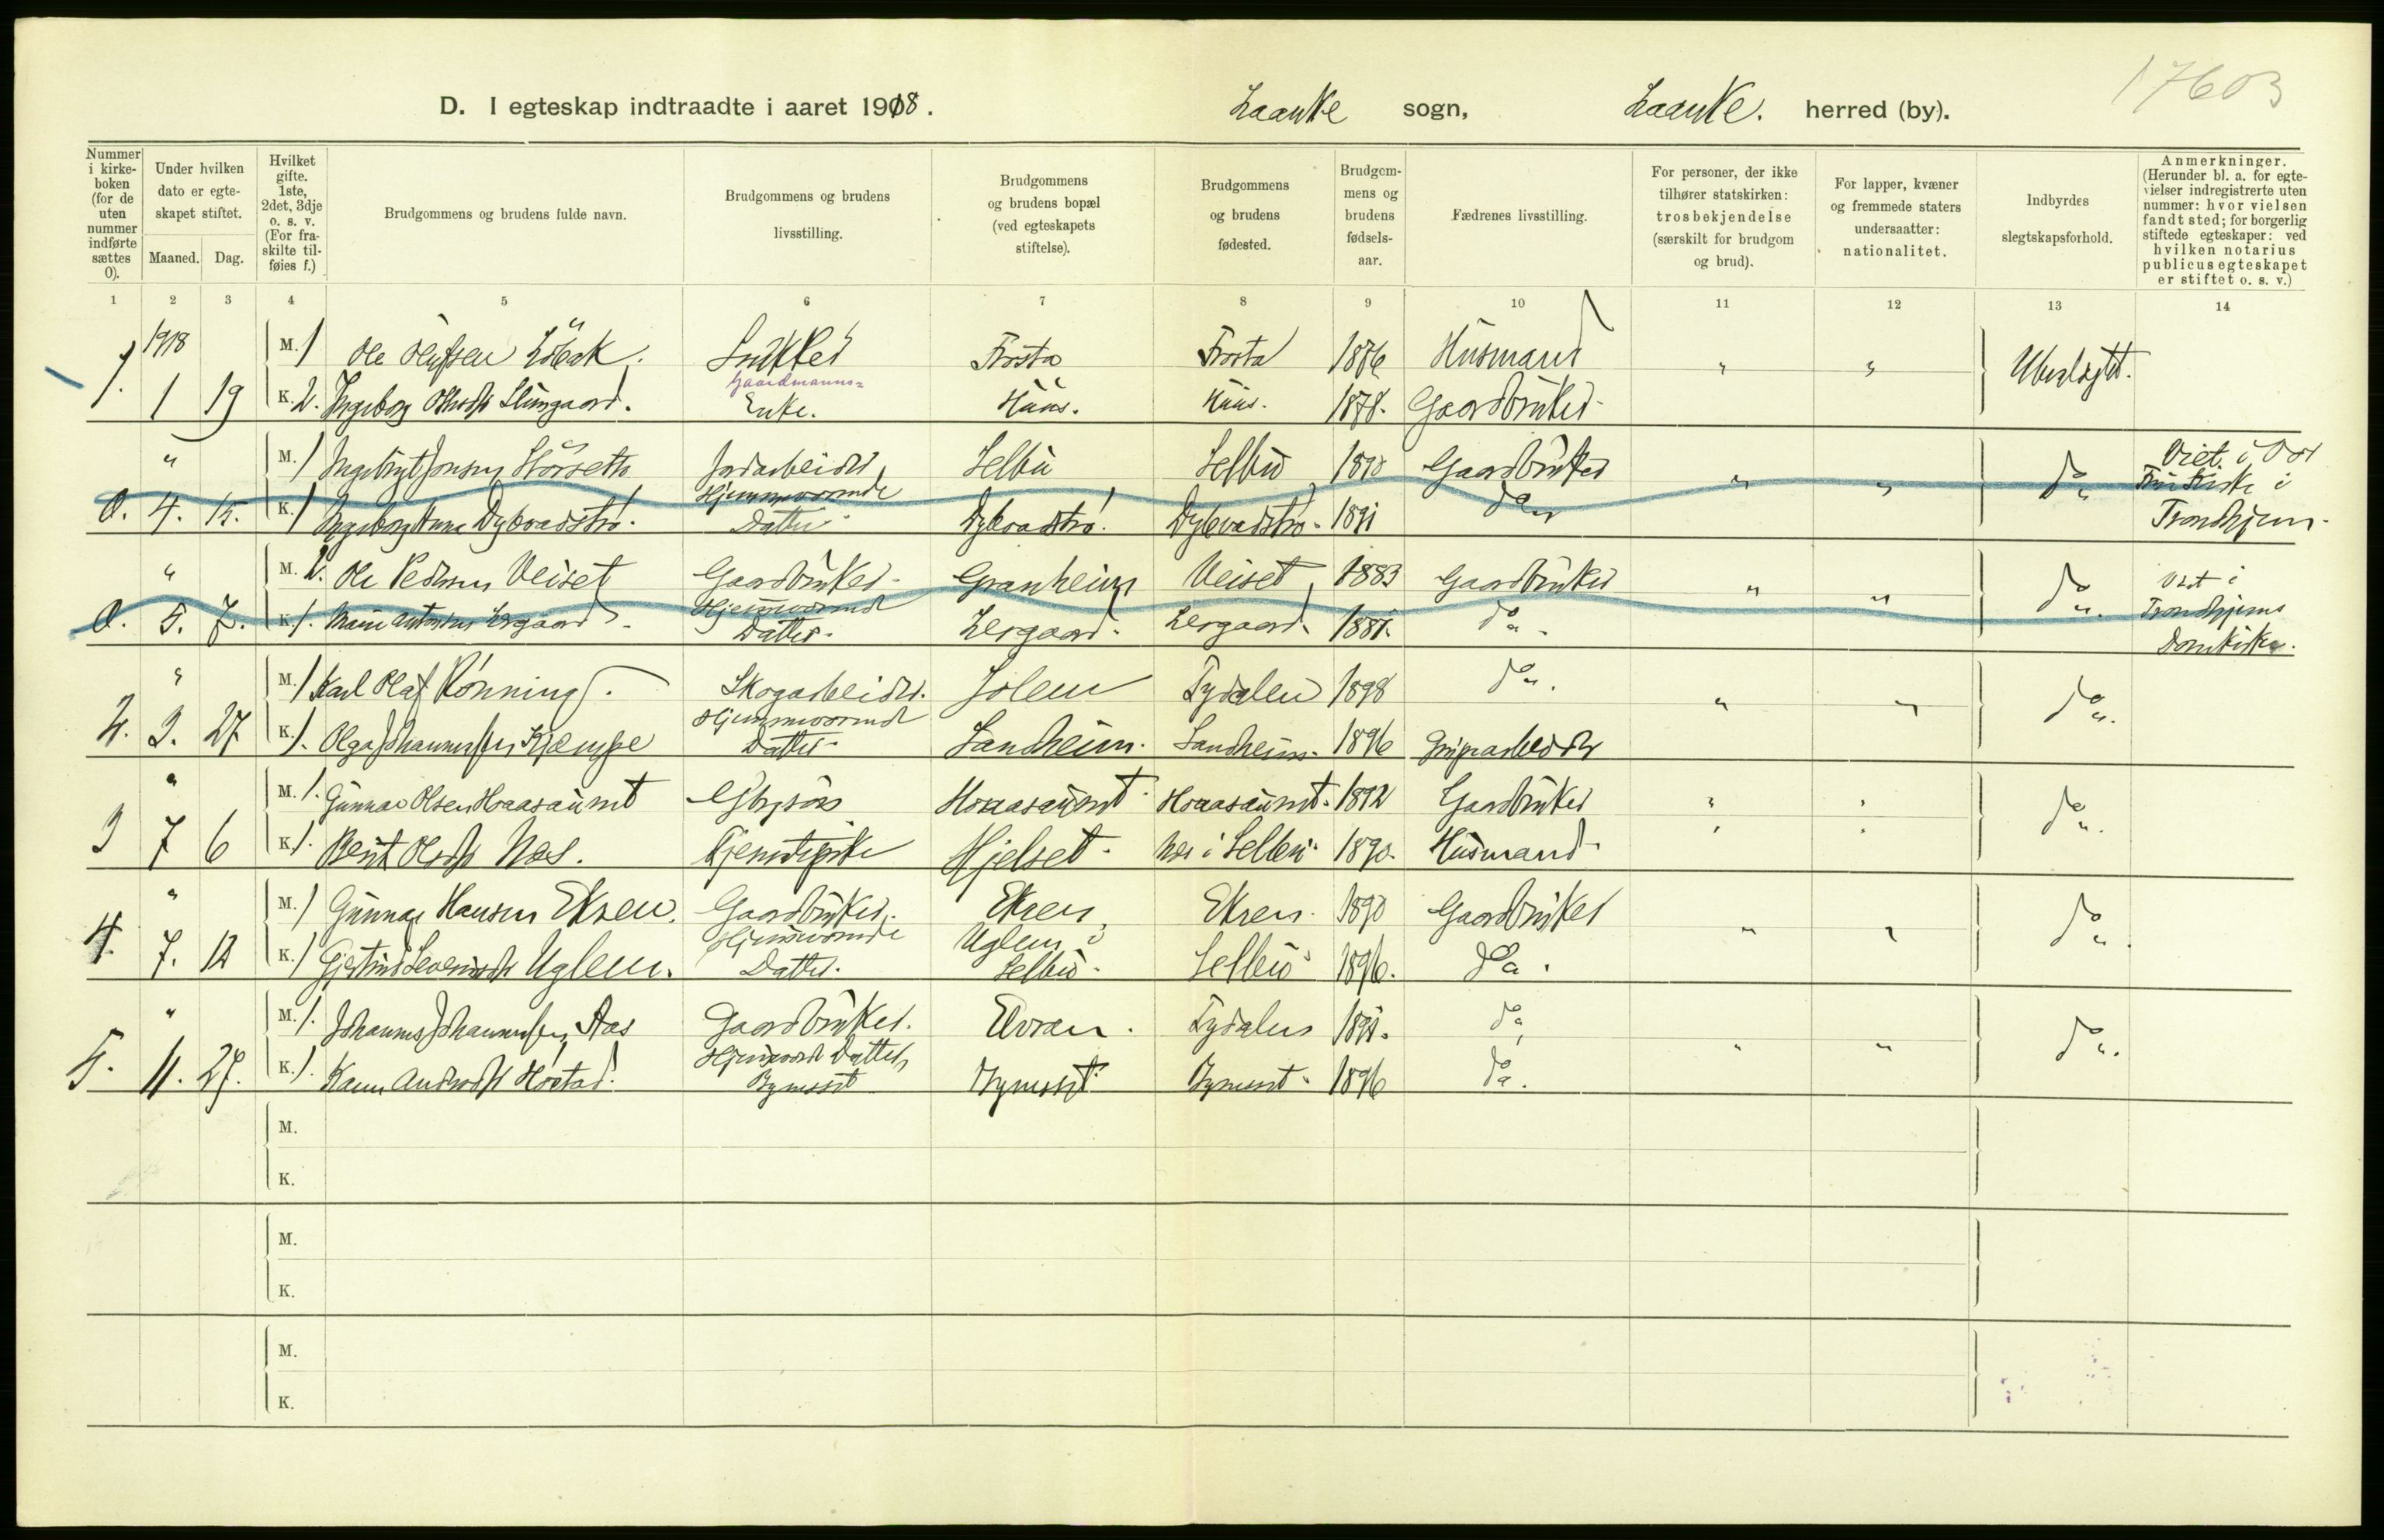 17603
D. I egteskap indtraadte i aaret 1918. Laanke sogn, Laanke. herred (by).
Nummer i kirkeboken (for de uten nummer indførte sættes 0).
Under hvilken dato er egteskapet stiftet.
Maaned. Dag.
Hvilket gifte. 1ste, 2det, 3dje o. s. v. (For fraskilte tilføies f.)
Brudgommens og brudens fulde navn.
Brudgommens og brudens livsstilling.
Brudgommens og brudens bopæl (ved egteskapets stiftelse).
Brudgommens og brudens fødested.
Brudgommens og brudens fødselsaar.
Fædrenes livsstilling.
For personer, der ikke tilhører statskirken: trosbekjendelse (særskilt for brudgom og brud).
For lapper, kvæner og fremmede staters undersaatter: nationalitet.
Indbyrdes slegtskapsforhold.
Anmerkninger. (Herunder bl. a. for egtevielser indregistrerte uten nummer: hvor vielsen fandt sted; for borgerlig stiftede egteskaper: ved hvilken notarius publicus egteskapet er stiftet o. s. v.)
1 2 3 4 5 6 7 8 9 10 11 12 13 14
1918
M. 1 Ole Olufsen Snekker Frosta Frosta 1876 Husmand " " Ubeslegtet.
1. 1 19 K. 2. Ingeborg Gaardmanns= Enke. 1878. Gaardbruker
" M. 1 Ingebrigt Jonsen Jordarbeider Selbu Selbu 1890 Gaardbruker " " do Viet i Vor
0. 4. 15. K. 1 Ingeborg Anna Dybvadstrø. Hjemmeværende Datter Dybvadstrø. Dybvadstrø. 1891 do Frue Kirke i
Trondhjem.
" M. 2. Ole Pedersen Veiset Gaardbruker Granheim Veiset 1883 Gaardbruker " " do. Viet i
0. 5. 7. K. 1. Lergaard. Hjemmeværende Datter. Lergaard. Lergaard. 1881. do. Trondhjems
Domkirke.
" M. 1 Karl Olaf Rønning. Skogarbeider. Solem Tydalen 1898 do. " " do.
2. 3. 27 K. 1. Olga Johannesen Kjæmpe Hjemmeværende Datter Sandheim. Sandheim. 1896 Grubearbeider
" M. 1. Gunnar Olsen Hoaasaunet Hoaasaunet Hoaasaunet. 1892 Gardbruker " " do.
3 7 6 K. 1. Berit Olsdtr Næs. Tjenestepike Hjelset. Næs i Selbu. 1890. Husmand.
" M. 1 Gunnar Hansen Ekren. Gaardbruker. Ekren Ekren. 1890 Gaardbruker " " do.
4. 7. 12 K. 1 Gjertrud Uglem. Hjemmeværende Datter. Uglem i Selbu. Selbu 1896. do.
" M. 1. Johannes Johannesen Aas Gaardbruker. Elvran. Tydalen 1891. do " " do.
5. 11. 27. K. 1. Karen Andrsdtr Hjemmeværende Datter 1896 do.
M.
K.
M.
K.
M.
K.